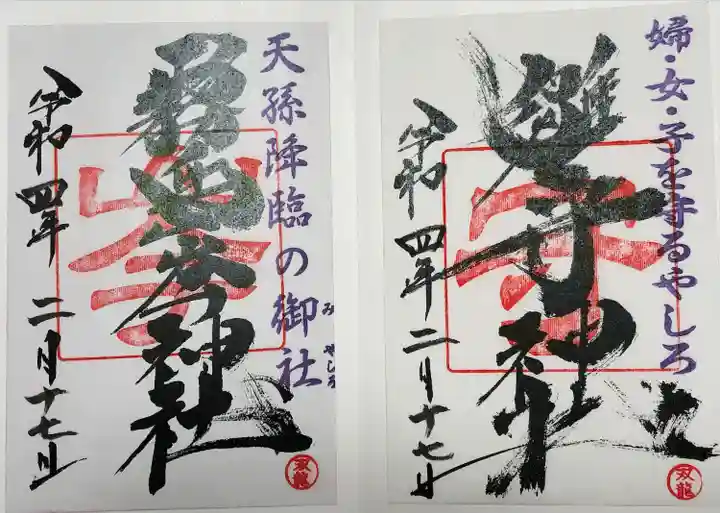 婦・女・子を守るやしろ
雛守神社
令和四年二月十七日
双龍
天孫降臨の御社
みやしろ
霧島岑神社
令和四年二月十七日
双龍